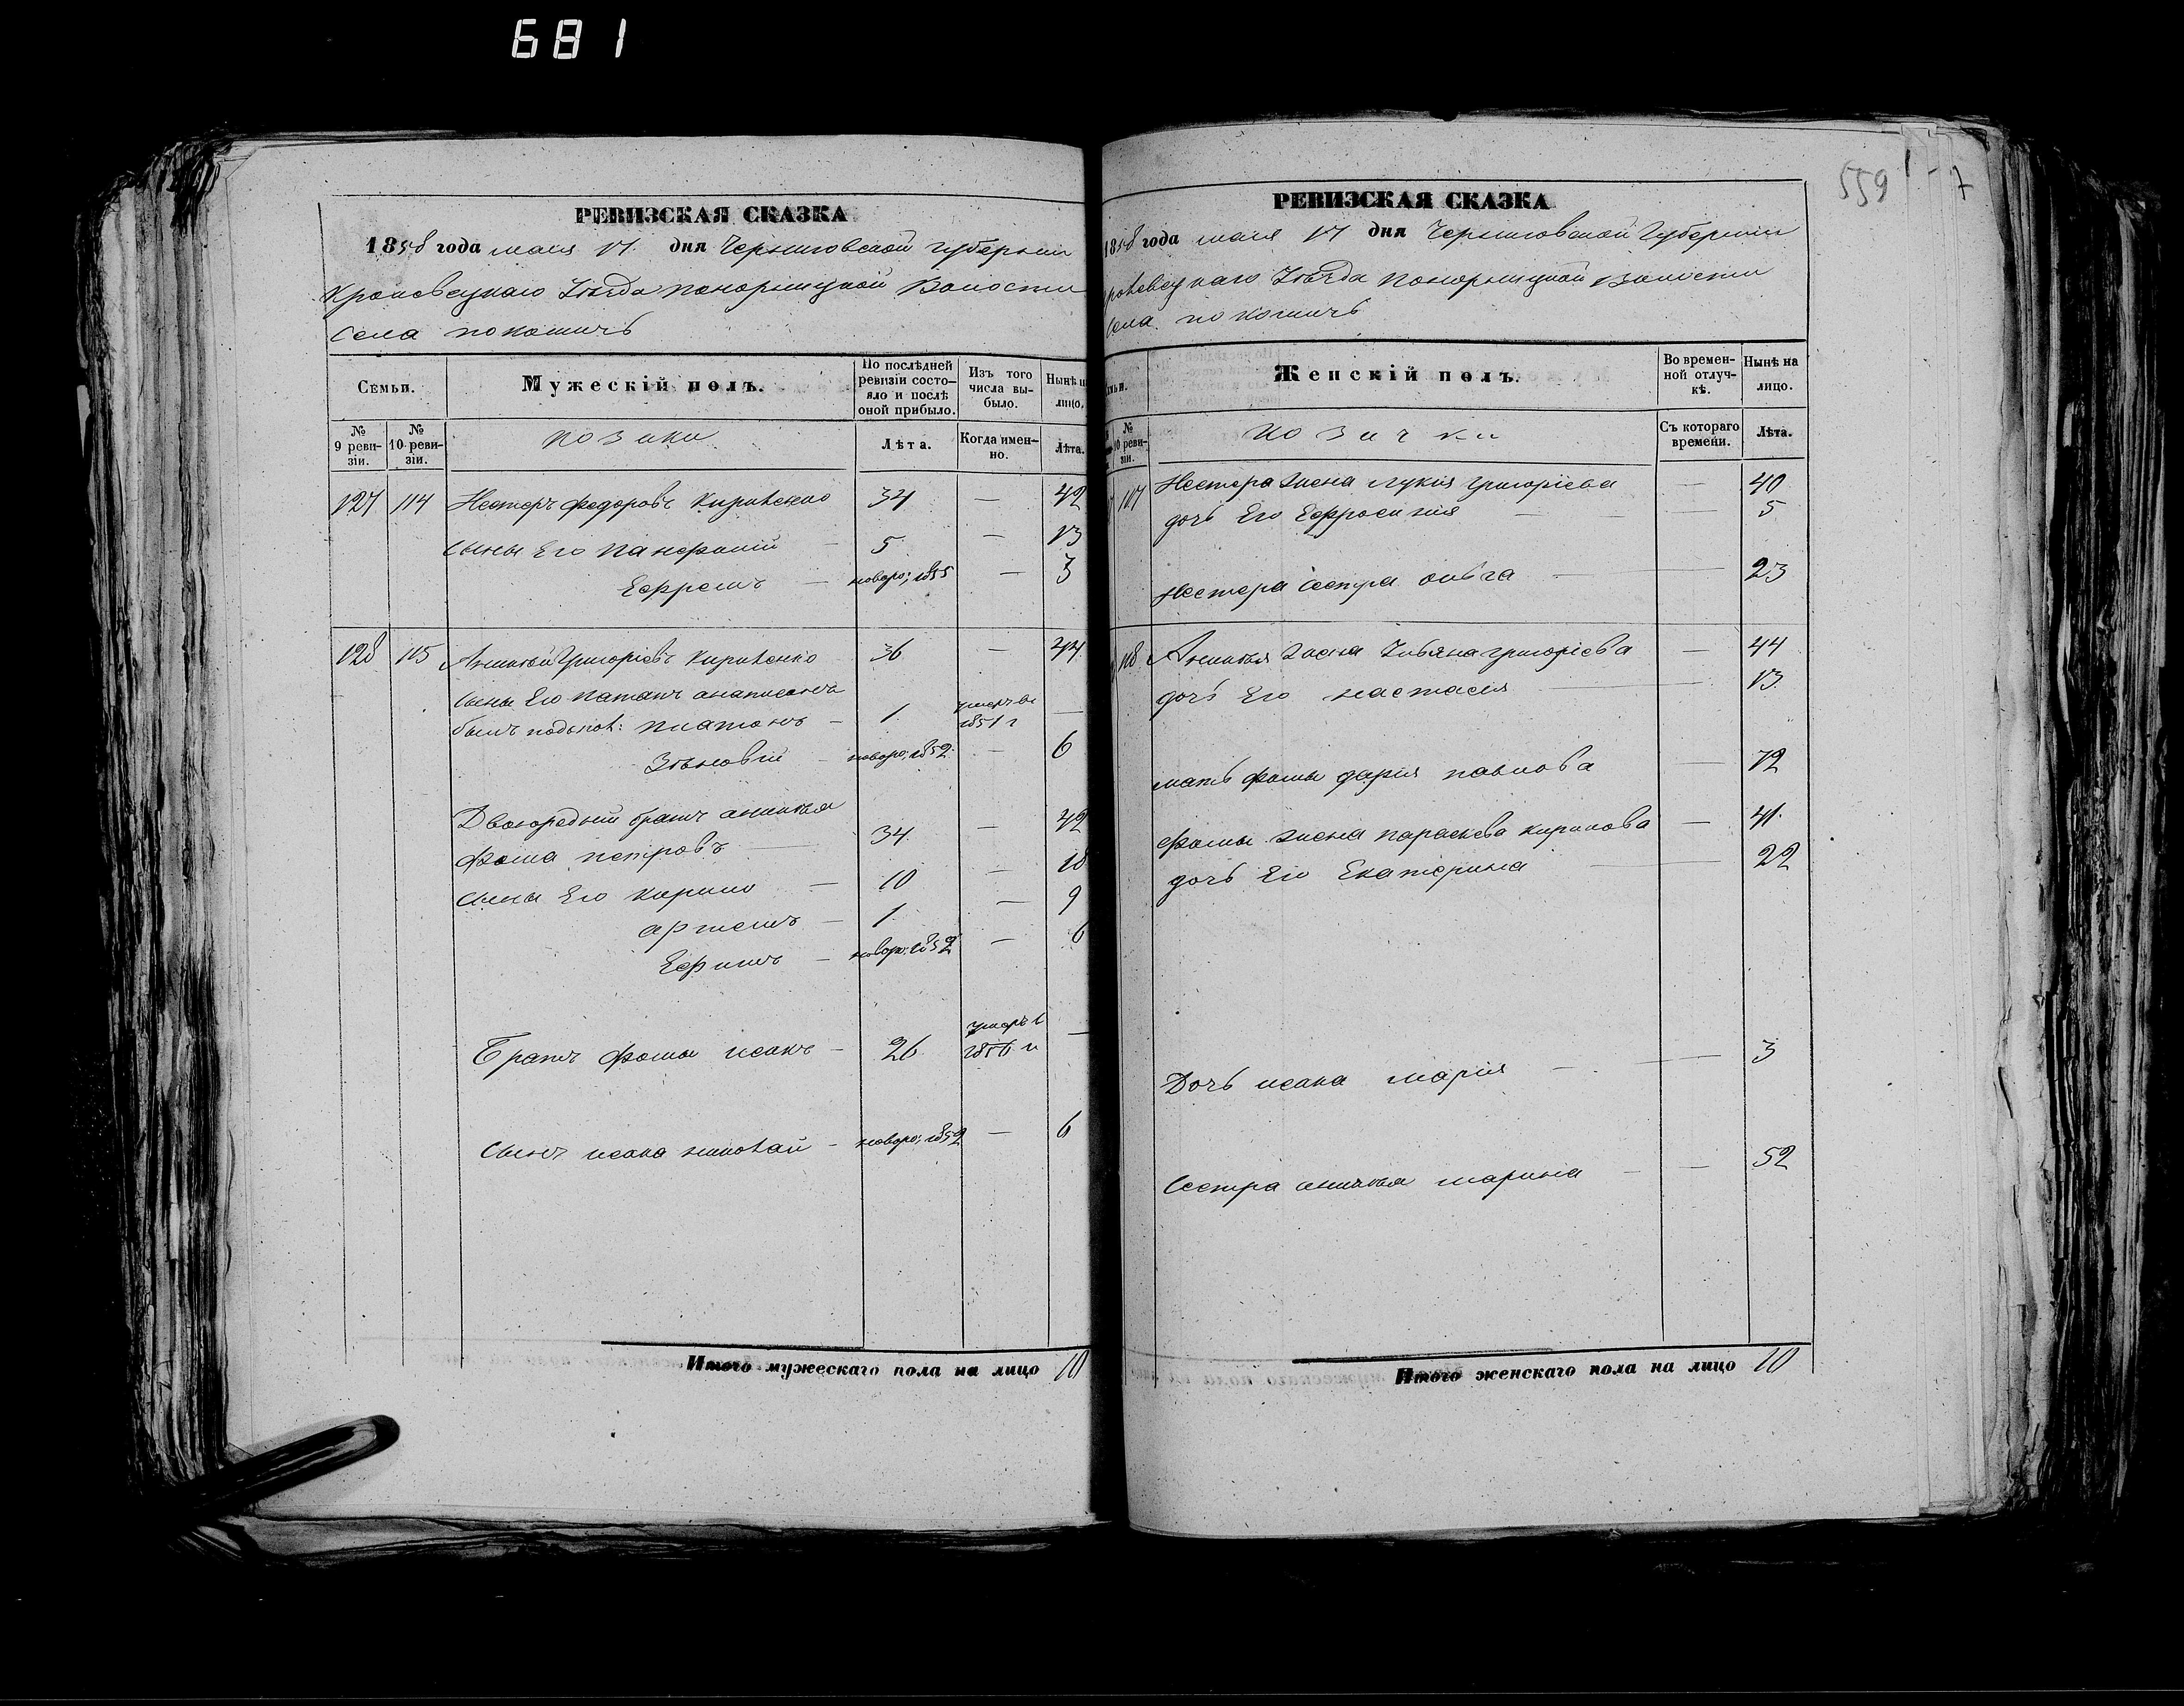 681
РЕВИЗСКАЯ СКАЗКА
1858 года мая 17 дня Черниговской губернии
Кролевецкаго Уѣзда Понорницкой Волости
Села Покошичъ
Семьи.
Мужескій полъ.
По послѣдней ревизіи состояло и послѣ оной прибыло.
Изъ того числа выбыло.
Нынѣ н лицо.
№ 9 ревизіи.
№ 10 ревизіи.
Козаки
Лѣта.
Когда именно.
Лѣта.
127 114 Нестеръ Федоровъ Кириленко 34 — 42
Сыны Его Панфилій — 5 — 13
Ефремъ — новоро; 1855 — 3
128 115 Аникѣй Григорієвъ Кириленко 36 — 44
Сыны Его
Платонъ — 1 умеръ въ 1851 г —
Зѣновій — новоро; 1852 — 6
Двоюродный братъ аникѣя
Фома петровъ — 34 — 42
Сыны Его Кирило — 10 — 18
артемъ — 1 — 9
Ефимъ — новоро; 1852 — 6
Братъ фомы исакъ — 26 умеръ в 1856 г —
Сынъ исака николай — новоро; 1852 — 6
Итого мужескаго пола на лицо 10
559
7
РЕВИЗСКАЯ СКАЗКА
1858 года мая 17 дня Черниговской Губернии
ролевецкаго Уѣзда Понорницкой Волости
Села Покошичъ
Женскій полъ.
Во временной отлучкѣ.
Нынѣ на лицо.
№ 10 ревизіи.
Козачки
Съ котораго времени.
Лѣта.
Нестера жена Лукія Григорієва — 40
дочь Его Ефросинія — — 5
Нестера сестра ольга — — 23
118 Аникѣя жена Ульяна григорієва — 44
дочь Его настасія — 13
мать фомы дарія павлова — 72
фомы жена параскева кирилова — 41
дочь Его Екатерина — 22
Дочь исака марія — — 3
Сестра аникѣя марина — — 52
Итого женскаго пола на лицо 10